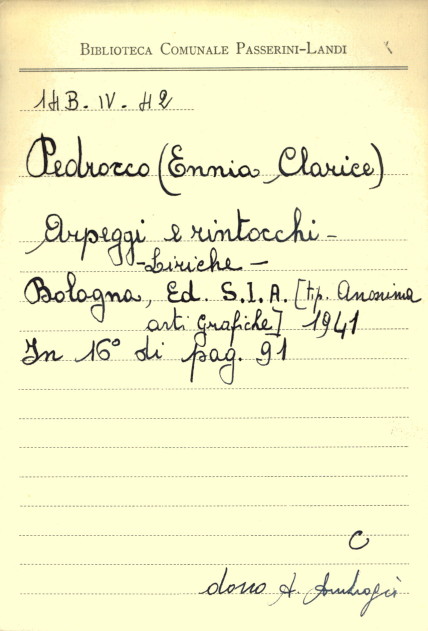 BIBLIOTECA COMUNALE PASSERINI-LANDI
14B. IV. 42
Pedrocco (Ennia Clarice)
Arpeggi e rintocchi -
- Liriche -
Bologna, Ed. S.I.A. [tip. Anonima
arti grafiche] 1941
In 16° di pag. 91
C
dono A.